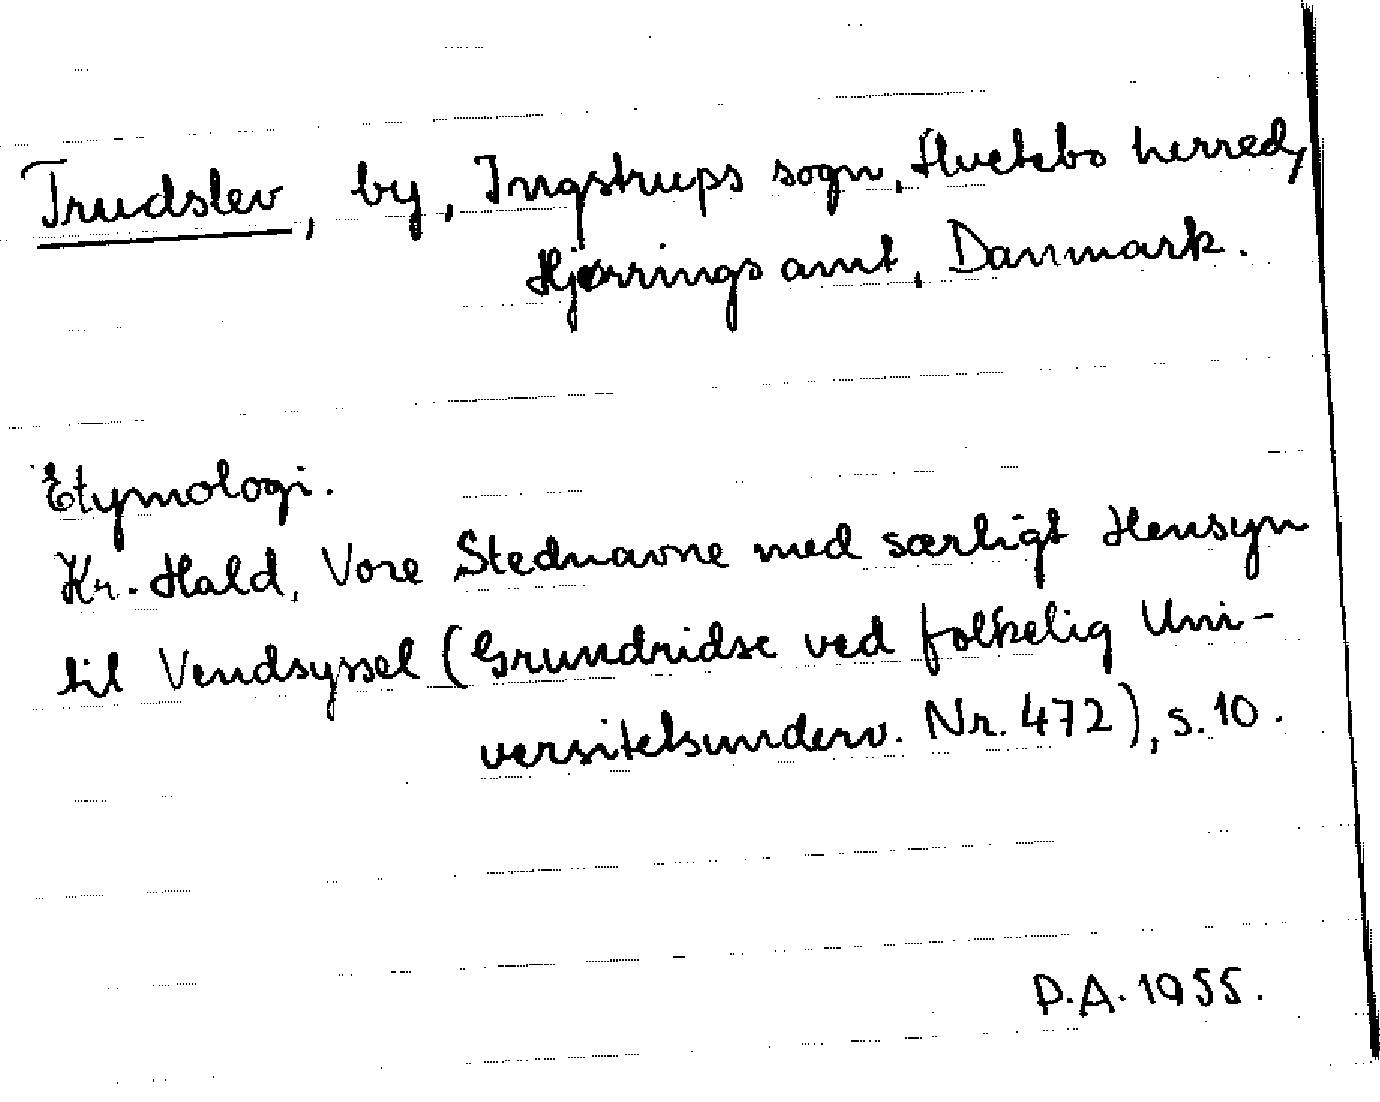 Trudslev, by, Ingstrups sogn, Hvetbo herred,
Hjørrings amt, Danmark.
Etymologi.
Kr. Hald, Vore Stednavne med særligt Hensyn
til Vendsyssel (Grundridse ved folkelig Uni-
versitetsunderv. Nr. 472), s. 10.
P.A. 1955.